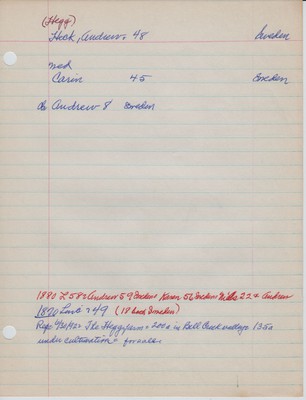 (Hegg)
Heck, Andrew 48 Sweden
md
Carin 45 Sweden
ch Andrew 8 Sweden
1880 L 58 = Andrew 59 Sweden Karen 56 Sweden 22 + Andrew
1870 Line 49 (18 back Sweden)
Rep. The Hegg farm = 200a in Bell Creek valley 135a
under cultivation + for sale.